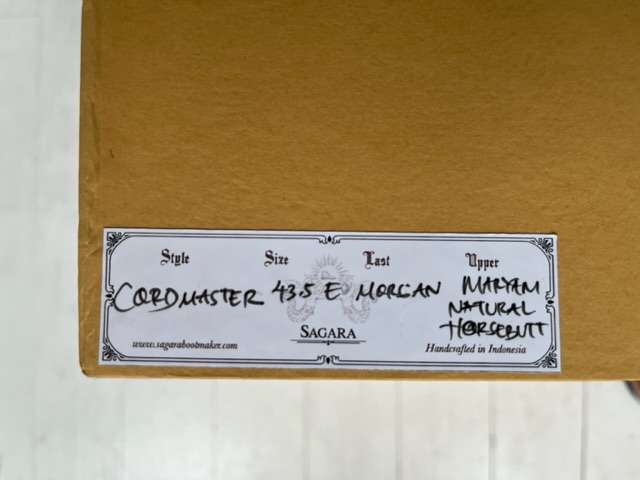 Style Size Last Upper
CORDMASTER 43.5 E MORGAN MARYAM
NATURAL
HORSEBUTT
SAGARA
www.sagarabootmaker.com Handcrafted in Indonesia